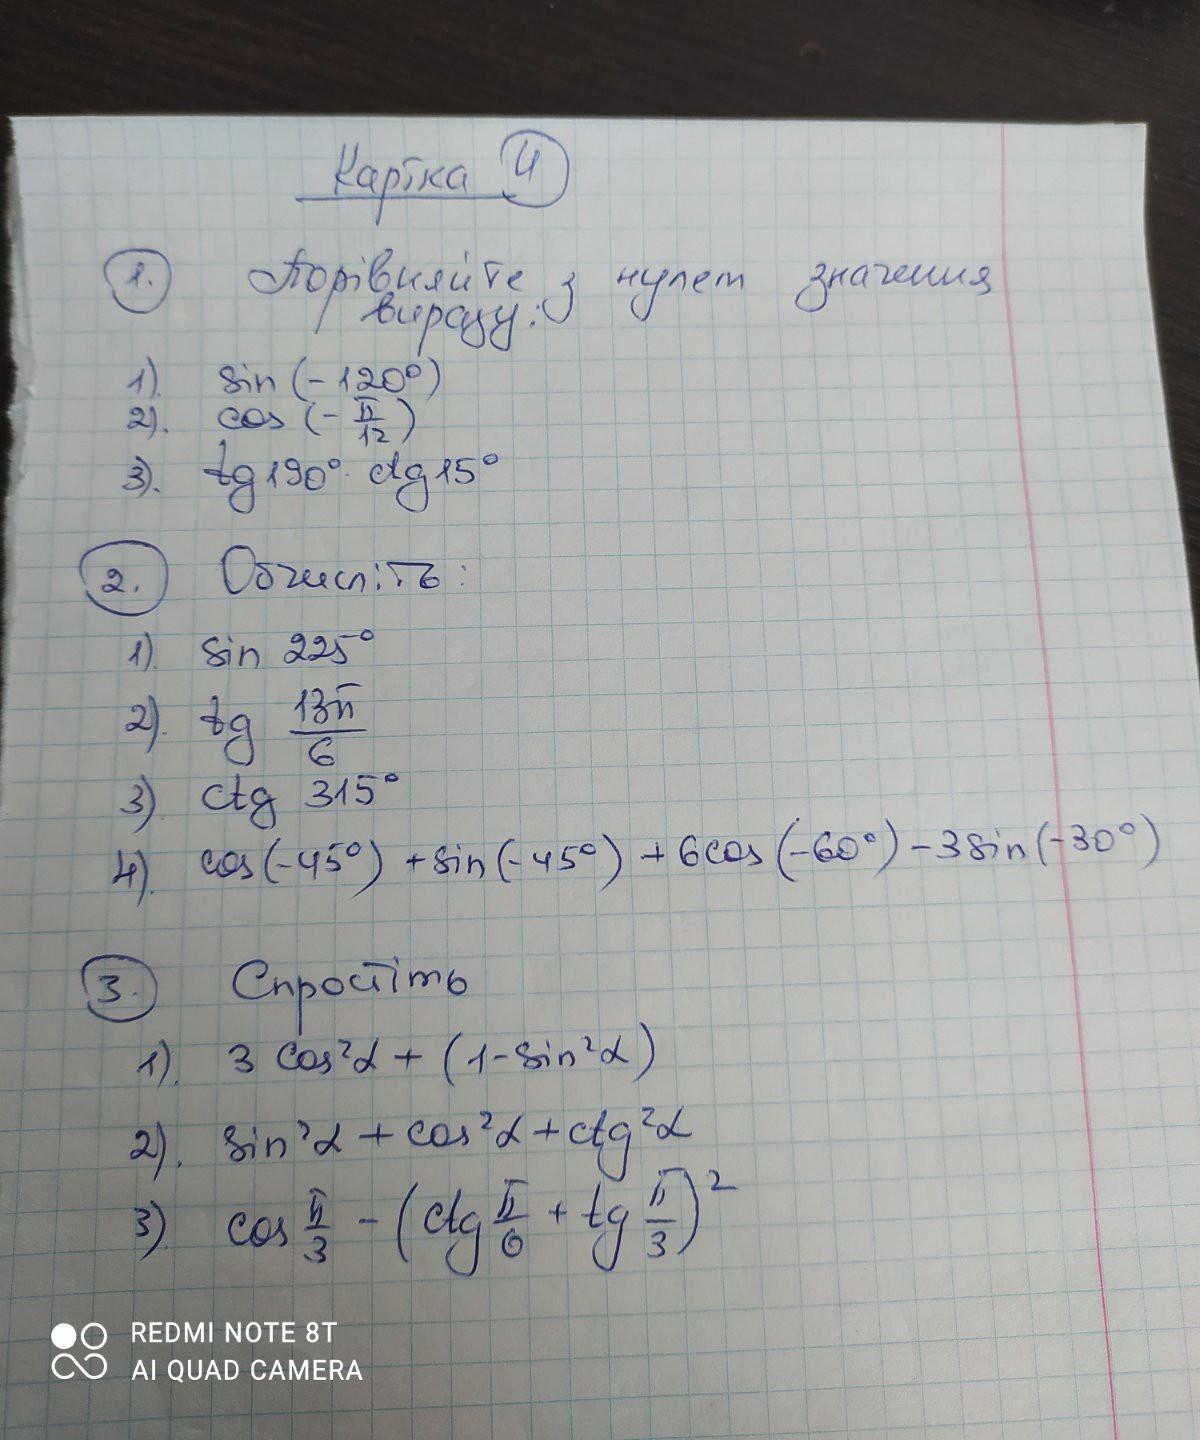 Картка 4
1. Порівняйте з нулем значення
виразу:
1). sin(-120°)
2). cos(-π/12)
3). tg190°·ctg15°
2. Обчисліть:
1). sin 225°
2). tg 13π/6
3). ctg 315°
4). cos(-45°)+sin(-45°)+6cos(-60°)-3sin(-30°)
3. Спростіть
1). 3cos²α+(1-sin²α)
2). sin²α+cos²α+ctg²α
3). cos π/3 - (ctg π/6 + tg π/3)²
REDMI NOTE 8T
AI QUAD CAMERA